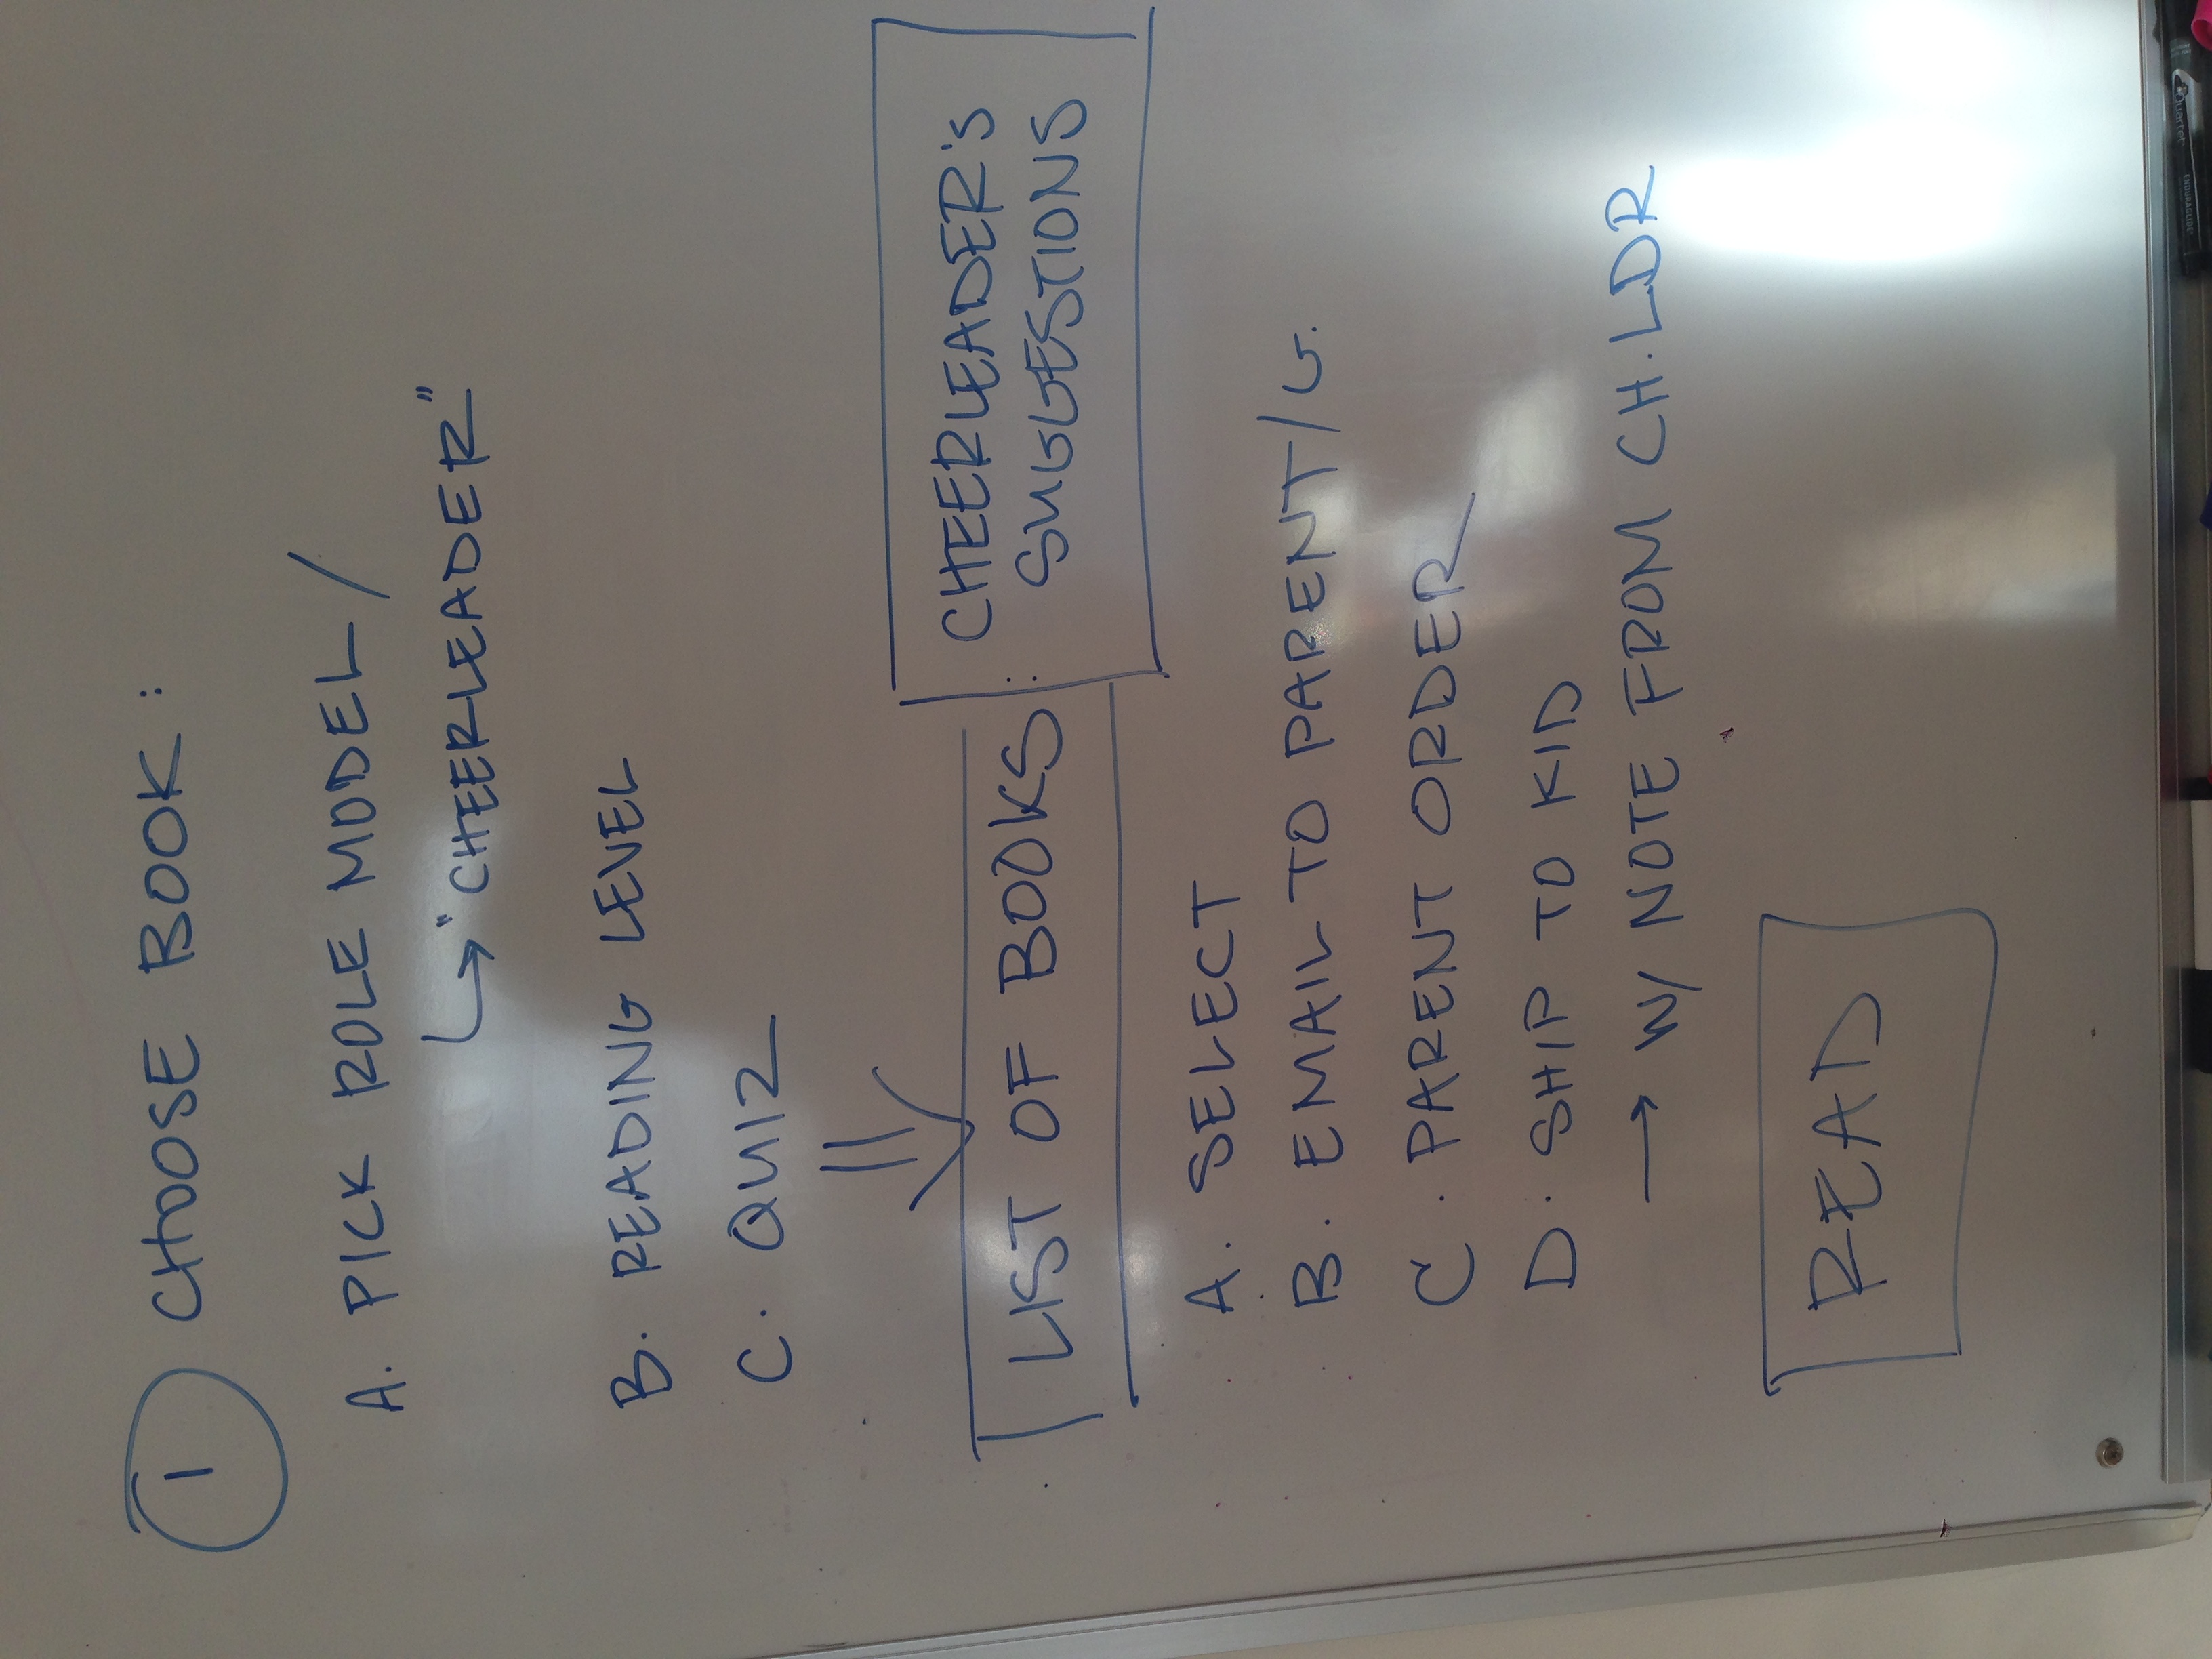 1 CHOOSE BOOK :
A. PICK ROLE MODEL /
↳ "CHEERLEADER"
B. READING LEVEL
C. QUIZ
LIST OF BOOKS : CHEERLEADER'S
SUGGESTIONS
A. SELECT
B. EMAIL TO PARENT/G.
C. PARENT ORDER
D. SHIP TO KID
→ W/ NOTE FROM CH.LDR
READ
Quartet
ENDURAGLIDE